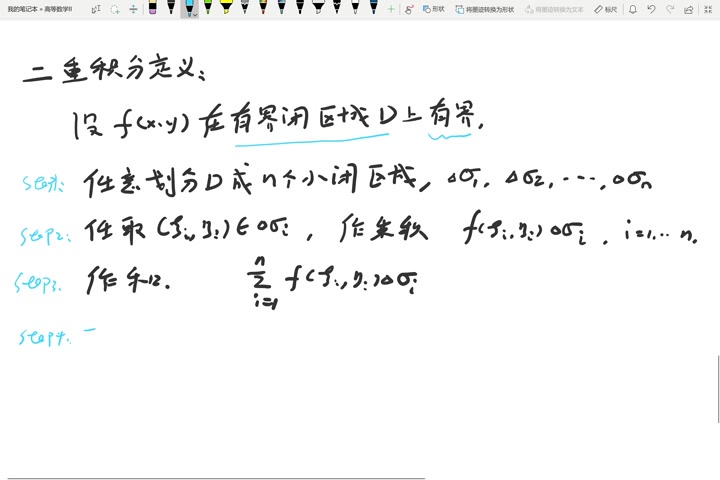 我的笔记本 » 高等数学II
形状
将墨迹转换为形状
将墨迹转换为文本
标尺
二重积分定义:
设 f(x,y) 在有界闭区域D上有界.
step1: 任意划分D成n个小闭区域, Δσ₁, Δσ₂, ⋯, Δσn
step2: 任取 (ξi, ηi) ∈ Δσi, 作乘积 f(ξi, ηi) Δσi, i=1,⋯ n.
step3. 作和. ∑ᵢ₌₁ⁿ f(ξi, ηi) Δσi
step4: